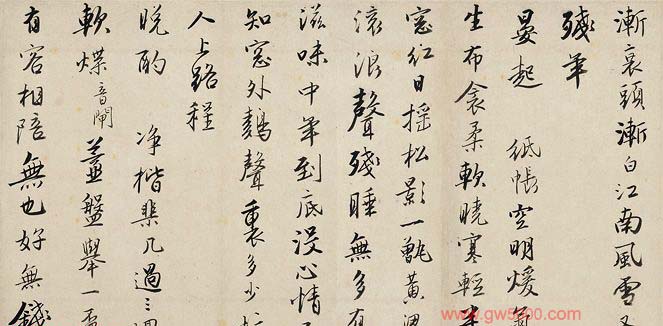 漸衰頭漸白江南風雪又
殘年
晏起 紙帳空明煖氣
生布衾柔軟曉寒輕半
窓紅日揺松影一甑黄粱
滚浪聲殘睡無多有
滋味中年到底沒心情
知窓外鷄聲裏多少忙
人上路程
晚酌 净楷棐几過三
軟煠音閘薑盤舉一盃
有客相陪無也好無錢
www.gw5000.com